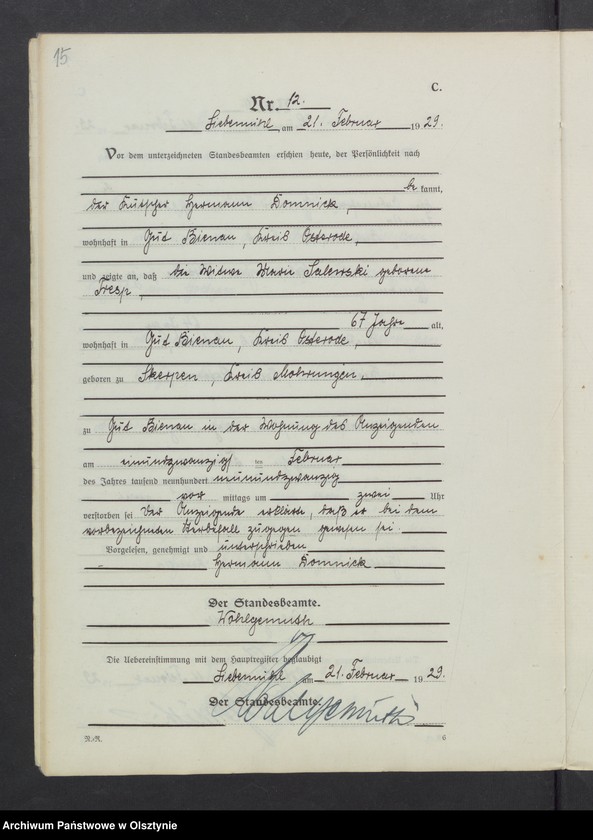 15
C.
Nr. 12.
Liebemühl, am 21. Februar 1929.
Vor dem unterzeichneten Standesbeamten erschien heute, der Persönlichkeit nach
be kannt,
der Kutscher Hermann Domnick,
wohnhaft in Gut Bienau, Kreis Osterode,
und zeigte an, daß die Witwe Marie Salewski geborene
Fresp,
67 Jahre alt,
wohnhaft in Gut Bienau, Kreis Osterode,
geboren zu Skerpen, Kreis Mohrungen,
zu Gut Bienau in der Wohnung des Anzeigenden
am einundzwanzigsten Februar
des Jahres tausend neunhundert neunundzwanzig
vor mittags um zwei Uhr
verstorben sei. Der Anzeigende erklärte, daß er bei dem
vorbezeichneten Sterbefall zugegen gewesen sei.
Vorgelesen, genehmigt und unterschrieben
Hermann Domnick
Der Standesbeamte.
Wohlgemuth
Die Uebereinstimmung mit dem Hauptregister beglaubigt
Liebemühl am 21. Februar 1929.
Der Standesbeamte.
Wohlgemuth
R.-R.
6
Archiwum Państwowe w Olsztynie